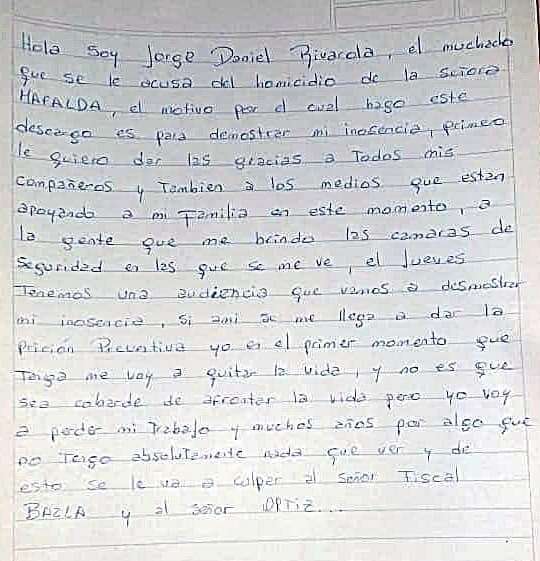 Hola Soy Jorge Daniel Rivarola, el muchado
que se le acusa del homicidio de la señora
MAFALDA, el motivo por el cual hago este
descargo es para demostrar mi inosencia, primero
le quiero dar las gracias a Todos mis
compañeros y Tambien a los medios que estan
apoyando a mi Familia en este momento, a
la gente que me brindo las camaras de
seguridad en las que se me ve, el Jueves
Tenemos una audiencia que vamos a desmostrar
mi inosencia, si ami se me llega a dar la
prición Preventiva yo en el primer momento que
Tenga me voy a quitar la vida, y no es que
sea cobarde de afrontar la vida pero yo voy
a peder mi Trabajo y muchos años por algo que
no Tengo absolutamente nada que ver y de
esto se le va a culpar al señor Fiscal
BAZLA y al señor OPTIZ...